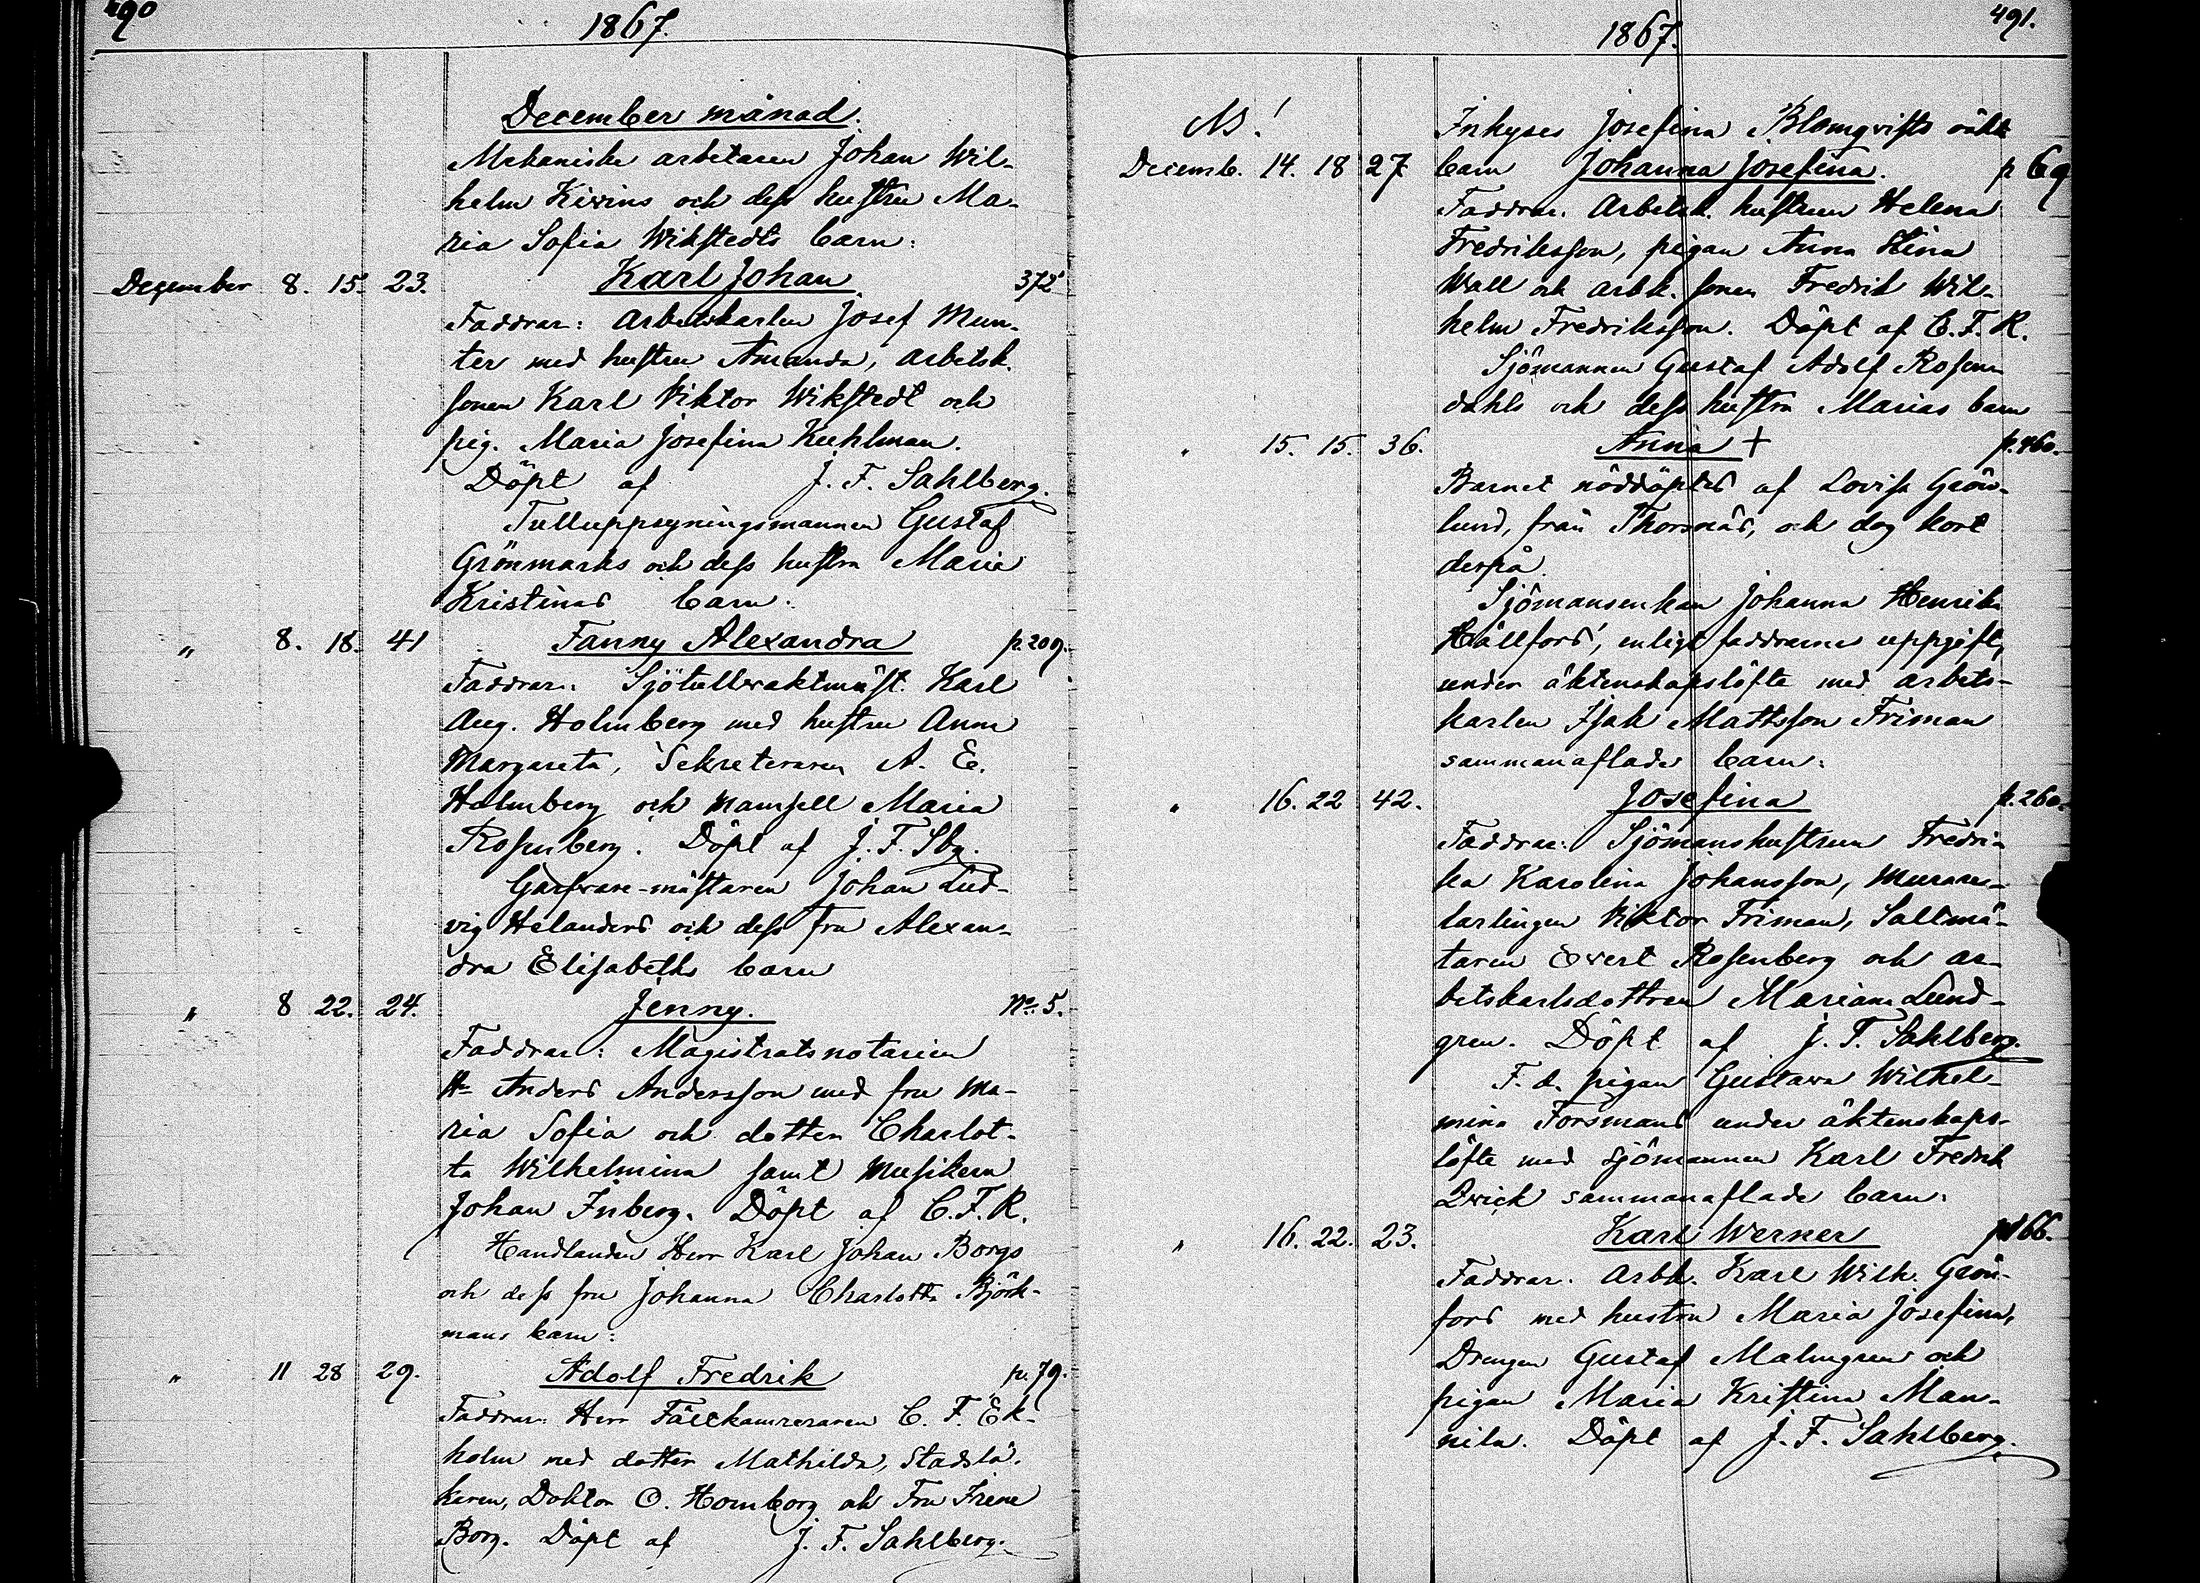 490
1867.
December månad.
Mekaniske arbetaren Johan Wil-
helm Kivins och dess hustru Ma-
ria Sofia Wikstedts barn:
December 8. 15. 23. Karl Johan 372
Faddrar: Arbetskarlen Josef Mun-
ter med hustru Amanda, arbetsk.
sonen Karl Viktor Wikstedt och
pig. Maria Josefina Kuhlman.
Döpt af J. F. Sahlberg.
Tulluppsyningsmannen Gustaf
Grönmarks och dess hustru Maria
Kristinas barn:
" 8. 18. 41 Fanny Alexandra p. 209.
Faddrar: Sjötullvaktmäst. Karl
Aug. Holmberg med hustru Anna
Margareta, Sekreteraren A. E.
Holmberg och Mamsell Maria
Rosenberg. Döpt af J. F. Sbg.
Garfvare-mästaren Johan Lud-
vig Helanders och dess fru Alexan-
dra Elisabeths barn
" 8 22. 24. Jenny. No. 5.
Faddrar: Magistratsnotarien
Hr Anders Andersson med fru Ma-
ria Sofia och dotter Charlot-
ta Wilhelmina samt Musikern
Johan Inberg. Döpt af C. F. R.
Handlanden Herr Karl Johan Borgs
och dess fru Johanna Charlotta Björk-
mans barn:
" 11 28 29. Adolf Fredrik p. 79.
Faddrar: Herr Fältkamreraren C. F. Ek-
holm med dotter Mathilda, Stadslä-
karen, Doktor O. Homborg och Fru Irene
Borg. Döpt af J. F. Sahlberg.
491.
1867.
NB!
Inhyses Josefina Blomqvists oäkta
Decemb. 14. 18 27 barn Johanna Josefina. p 69
Faddrar: Arbetsk. hustrun Helena
Fredriksson, pigan Anna Stina
Wall och arbk. sonen Fredrik Wil-
helm Fredriksson. Döpt af C. F. R.
Sjömannen Gustaf Adolf Rosen-
dahls och dess hustru Marias barn
" 15. 15. 36. Anna + p. 460.
Barnet nöddöptes af Lovisa Grön-
lund, från Thorsnäs, och dog kort
derpå.
Sjömansenkan Johanna Henrika
Hällfors', enligt faddrarnes uppgift,
under äktenskapslöfte med arbets-
karlen Isak Mattsson Friman
sammanaflade barn:
" 16. 22 42. Josefina p. 260.
Faddrar: Sjömanshustrun Fredri-
ka Karolina Johansson, Murare-
lärlingen Viktor Friman, Saltmä-
taren Evert Rosenberg och ar-
betskarlsdottren Mariana Lund-
gren. Döpt af J. F. Sahlberg.
F. d. pigan Gustava Wilhel-
mina Forsmans under äktenskaps-
löfte med sjömannen Karl Fredrik
Qvick sammanaflade barn:
" 16. 22. 23. Karl Werner p 166.
Faddrar: Arbk. Karl Wilh. Grön-
fors med hustru Maria Josefina,
Drengen Gustaf Malmgren och
pigan Maria Kristina Man-
nila. Döpt af J. F. Sahlberg.